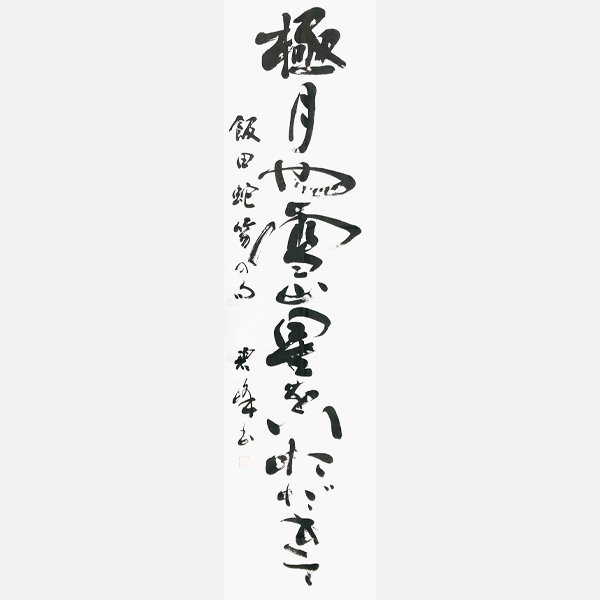 極月や雪山星をいただきて
飯田蛇笏の句
峰書